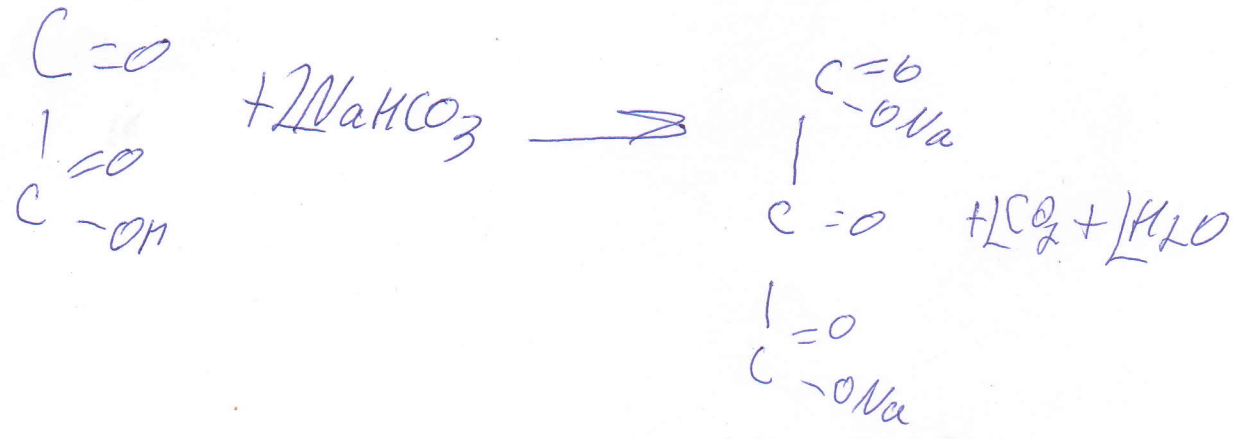 C=O
C=O
-OH
+2NaHCO3 →
C=O
-ONa
C=O
C=O
-ONa
+2CO2+2H2O